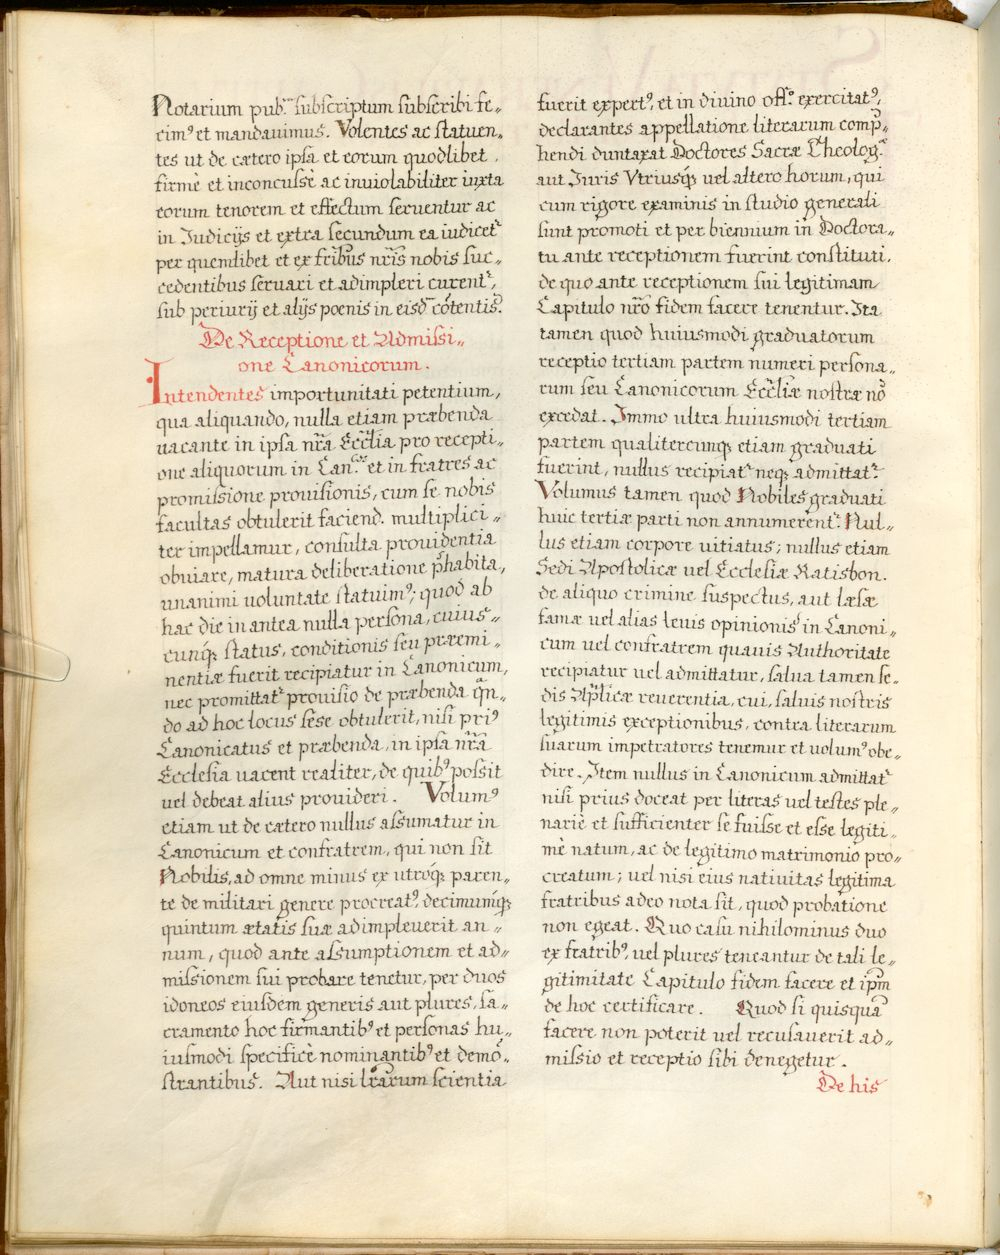 Notarium pub.ᵐ subscriptum subscribi fe„
cimꝰ et mandauimus. Volentes ac statuen„
tes ut de cætero ipsa et eorum quodlibet,
firmè et inconcussè ac inuiolabiliter iuxta
eorum tenorem et effectum seruentur ac
in Iudicijs et extra secundum ea iudicet᷑
per quemlibet et ex fr̃ibus nr̃is nobis suc„
cedentibus seruari et adimpleri curent᷑,
sub periurij et alijs poenis in eisd̃ cõtentis.
De Receptione et Admissi„
one Canonicorum.
Intendentes importunitati petentium,
qua aliquando, nulla etiam præbenda
uacante in ipsa nr̃a Eccl̃ia pro recepti„
one aliquorum in Can.ᶜᵒˢ et in fratres ac
promissione prouisionis, cum se nobis
facultas obtulerit faciend. multiplici„
ter impellamur, consulta prouidentia
obuiare, matura deliberatione p̃habita,
unanimi uoluntate statuimꝰ; quod ab
hac die in antea nulla persona, cuius„
cunqꝫ status, conditionis seu præemi„
nentiæ fuerit recipiatur in Canonicum,
nec promittat᷑ prouisio de præbenda q̃n„
do ad hoc locus sese obtulerit, nisi priꝰ
Canonicatus et præbenda, in ipsa nr̃a
Ecclesia uacent realiter, de quibꝰ possit
uel debeat alius prouideri. Volumꝰ
etiam ut de cætero nullus assumatur in
Canonicum et confratrem, qui non sit
Nobilis, ad omne minus ex utroqꝫ paren„
te de militari genere procreatꝰ, decimumqꝫ
quintum ætatis suæ adimpleuerit an„
num, quod ante assumptionem et ad„
missionem sui probare tenetur, per duos
idoneos eiusdem generis aut plures, sa„
cramento hoc firmantibꝰ et personas hu„
iusmodi specificè nominantibꝰ et demõ„
strantibus. Aut nisi lr̃arum scientia
fuerit expertꝰ, et in diuino off.º exercitatꝰ,
declarantes appellatione literarum comp̃„
hendi duntaxat Doctores Sacræ Theolog.ᵉ
aut Iuris Vtriusqꝫ uel altero horum, qui
cum rigore examinis in studio generali
sunt promoti et per biennium in Doctora„
tu ante receptionem fuerint constituti,
de quo ante receptionem sui legitimam
Capitulo nr̃o fidem facere tenentur. Ita
tamen quod huiusmodi graduatorum
receptio tertiam partem numeri persona„
rum seu Canonicorum Eccl̃iæ nostræ nõ
excedat. Immo ultra huiusmodi tertiam
partem qualitercunqꝫ etiam graduati
fuerint, nullus recipiat᷑ neqꝫ admittat᷑.
Volumus tamen quod Nobiles graduati
huic tertiæ parti non annumerent᷑. Nul„
lus etiam corpore uitiatus; nullus etiam
Sedi Apostolicæ uel Ecclesiæ Ratisbon.
de aliquo crimine suspectus, aut læsæ
famæ uel alias leuis opinionis in Canoni„
cum uel confratrem quauis Authoritate
recipiatur uel admittatur, salua tamen se„
dis Ap̃licæ reuerentia, cui, saluis nostris
legitimis exceptionibus, contra literarum
suarum impetratores tenemur et uolumꝰ obe„
dire. Item nullus in Canonicum admittat᷑
nisi prius doceat per literas uel testes ple„
nariè et sufficienter se fuisse et esse legiti„
mè natum, ac de legitimo matrimonio pro„
creatum; uel nisi eius natiuitas legitima
fratribus adeo nota sit, quod probatione
non egeat. Quo casu nihilominus duo
ex fratribꝰ, uel plures teneantur de tali le„
gitimitate Capitulo fidem facere et ip̃m
de hoc certificare. Quod si quisquã
facere non poterit uel recusauerit ad„
missio et receptio sibi denegetur.
De his